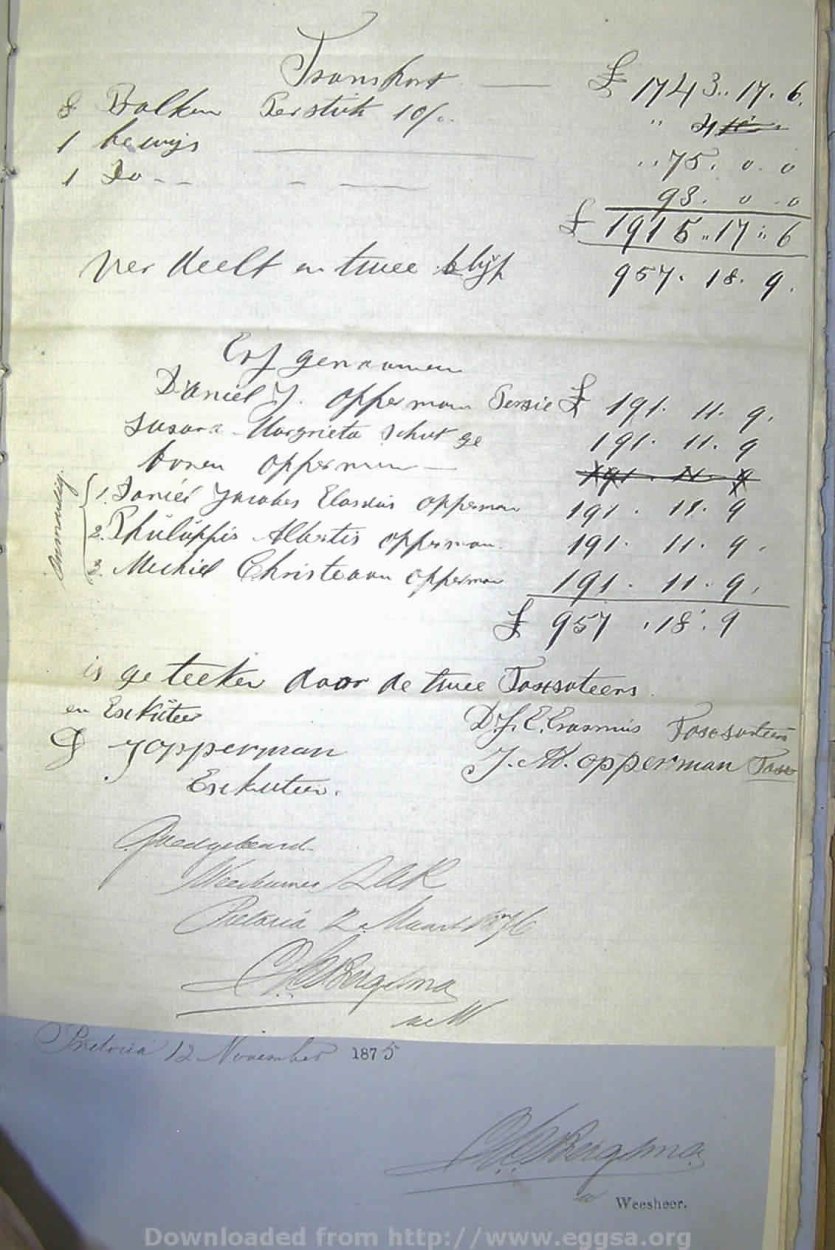 Transport — £ 1743.. 17. 6.
8 Balken Per stuk 10/- " 4
1 bewijs — .. 75. 0. 0
1 Do - - — 93. 0. 0
£ 1915.. 17.. 6
Ver deelt in twee blijft 957. 18. 9.
Erf genaamen
Daniel J. Opperman Sersie £ 191. 11. 9.
Susara Margrieta Schut ge 191. 11. 9
boren Opperman —
Onmondig.
1. Daniel Jacobus Elardus Opperman 191. 11. 9
2. Philippis Albertis Opperman 191. 11. 9.
3. Mechiel Christeaan Opperman 191. 11. 9.
£ 957. 18. 9
is ge teeken door de twee Taxsateers
en Exkuteer
D J Opperman
Exkuteer.
D. J. E. Erasmus Taxsateer
J. M. Opperman Taxs
Goedgekeurd
Weeskamer ZAR
Pretoria 2 Maart 1876
Bergsma
w W
Pretoria 12 November 1875
Bergsma
w Weesheer.
Downloaded from http://www.eggsa.org